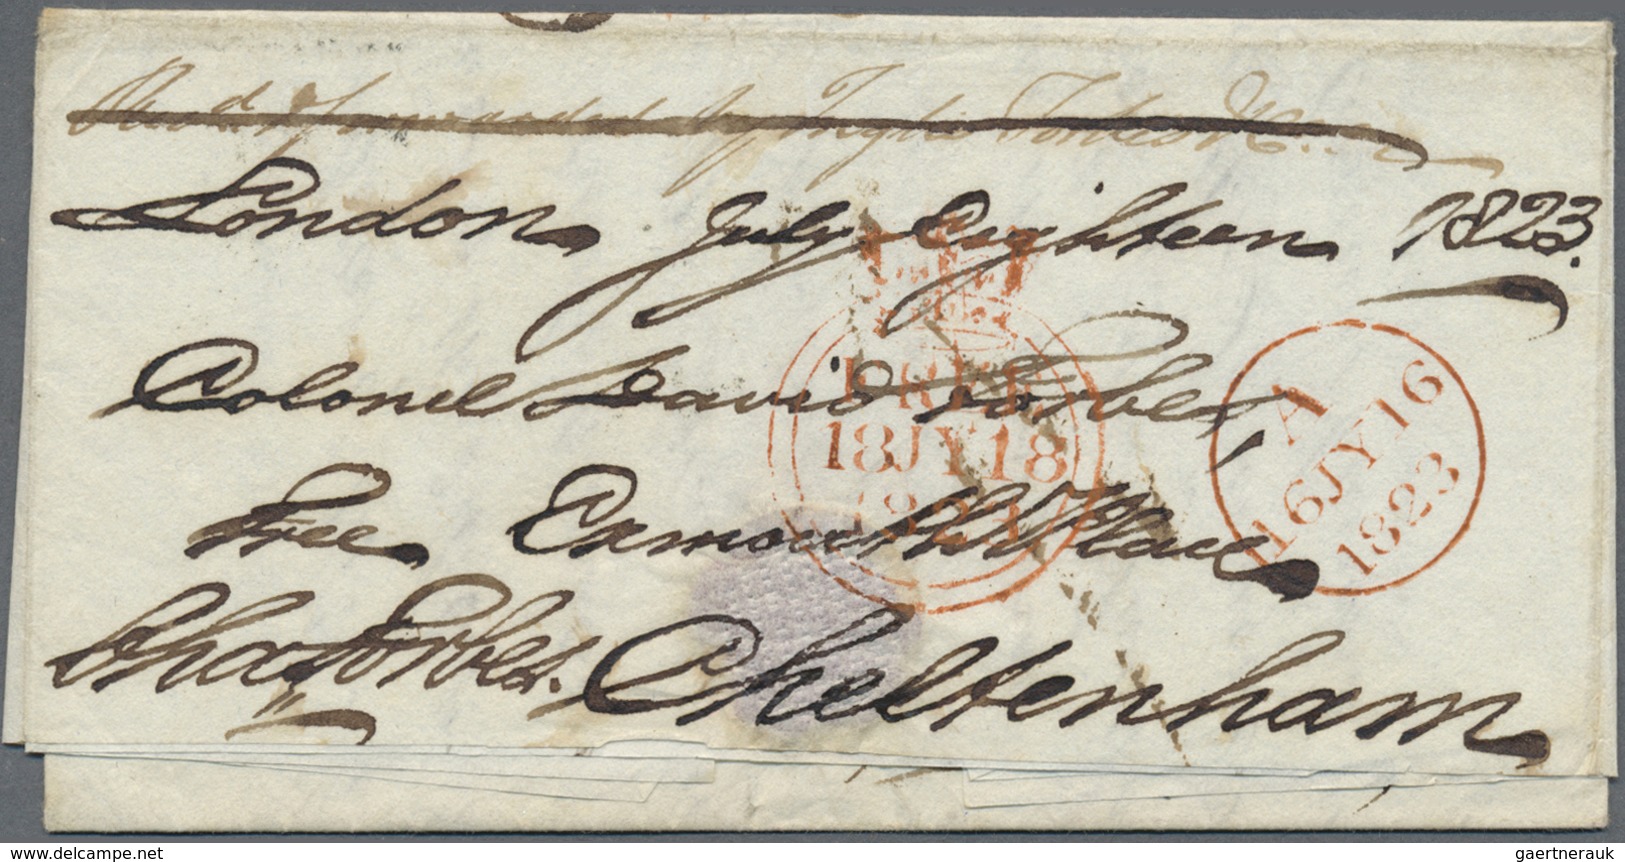 Rec.d & forwarded by Forbes & Co
London July Eighteen 1823.
Colonel David Forbes,
Free Exmouth Place
Chas Forbes. Cheltenham
FREE
18 JY 18
1823
A
16 JY 16
1823
www.delcampe.net
gaertnerauk